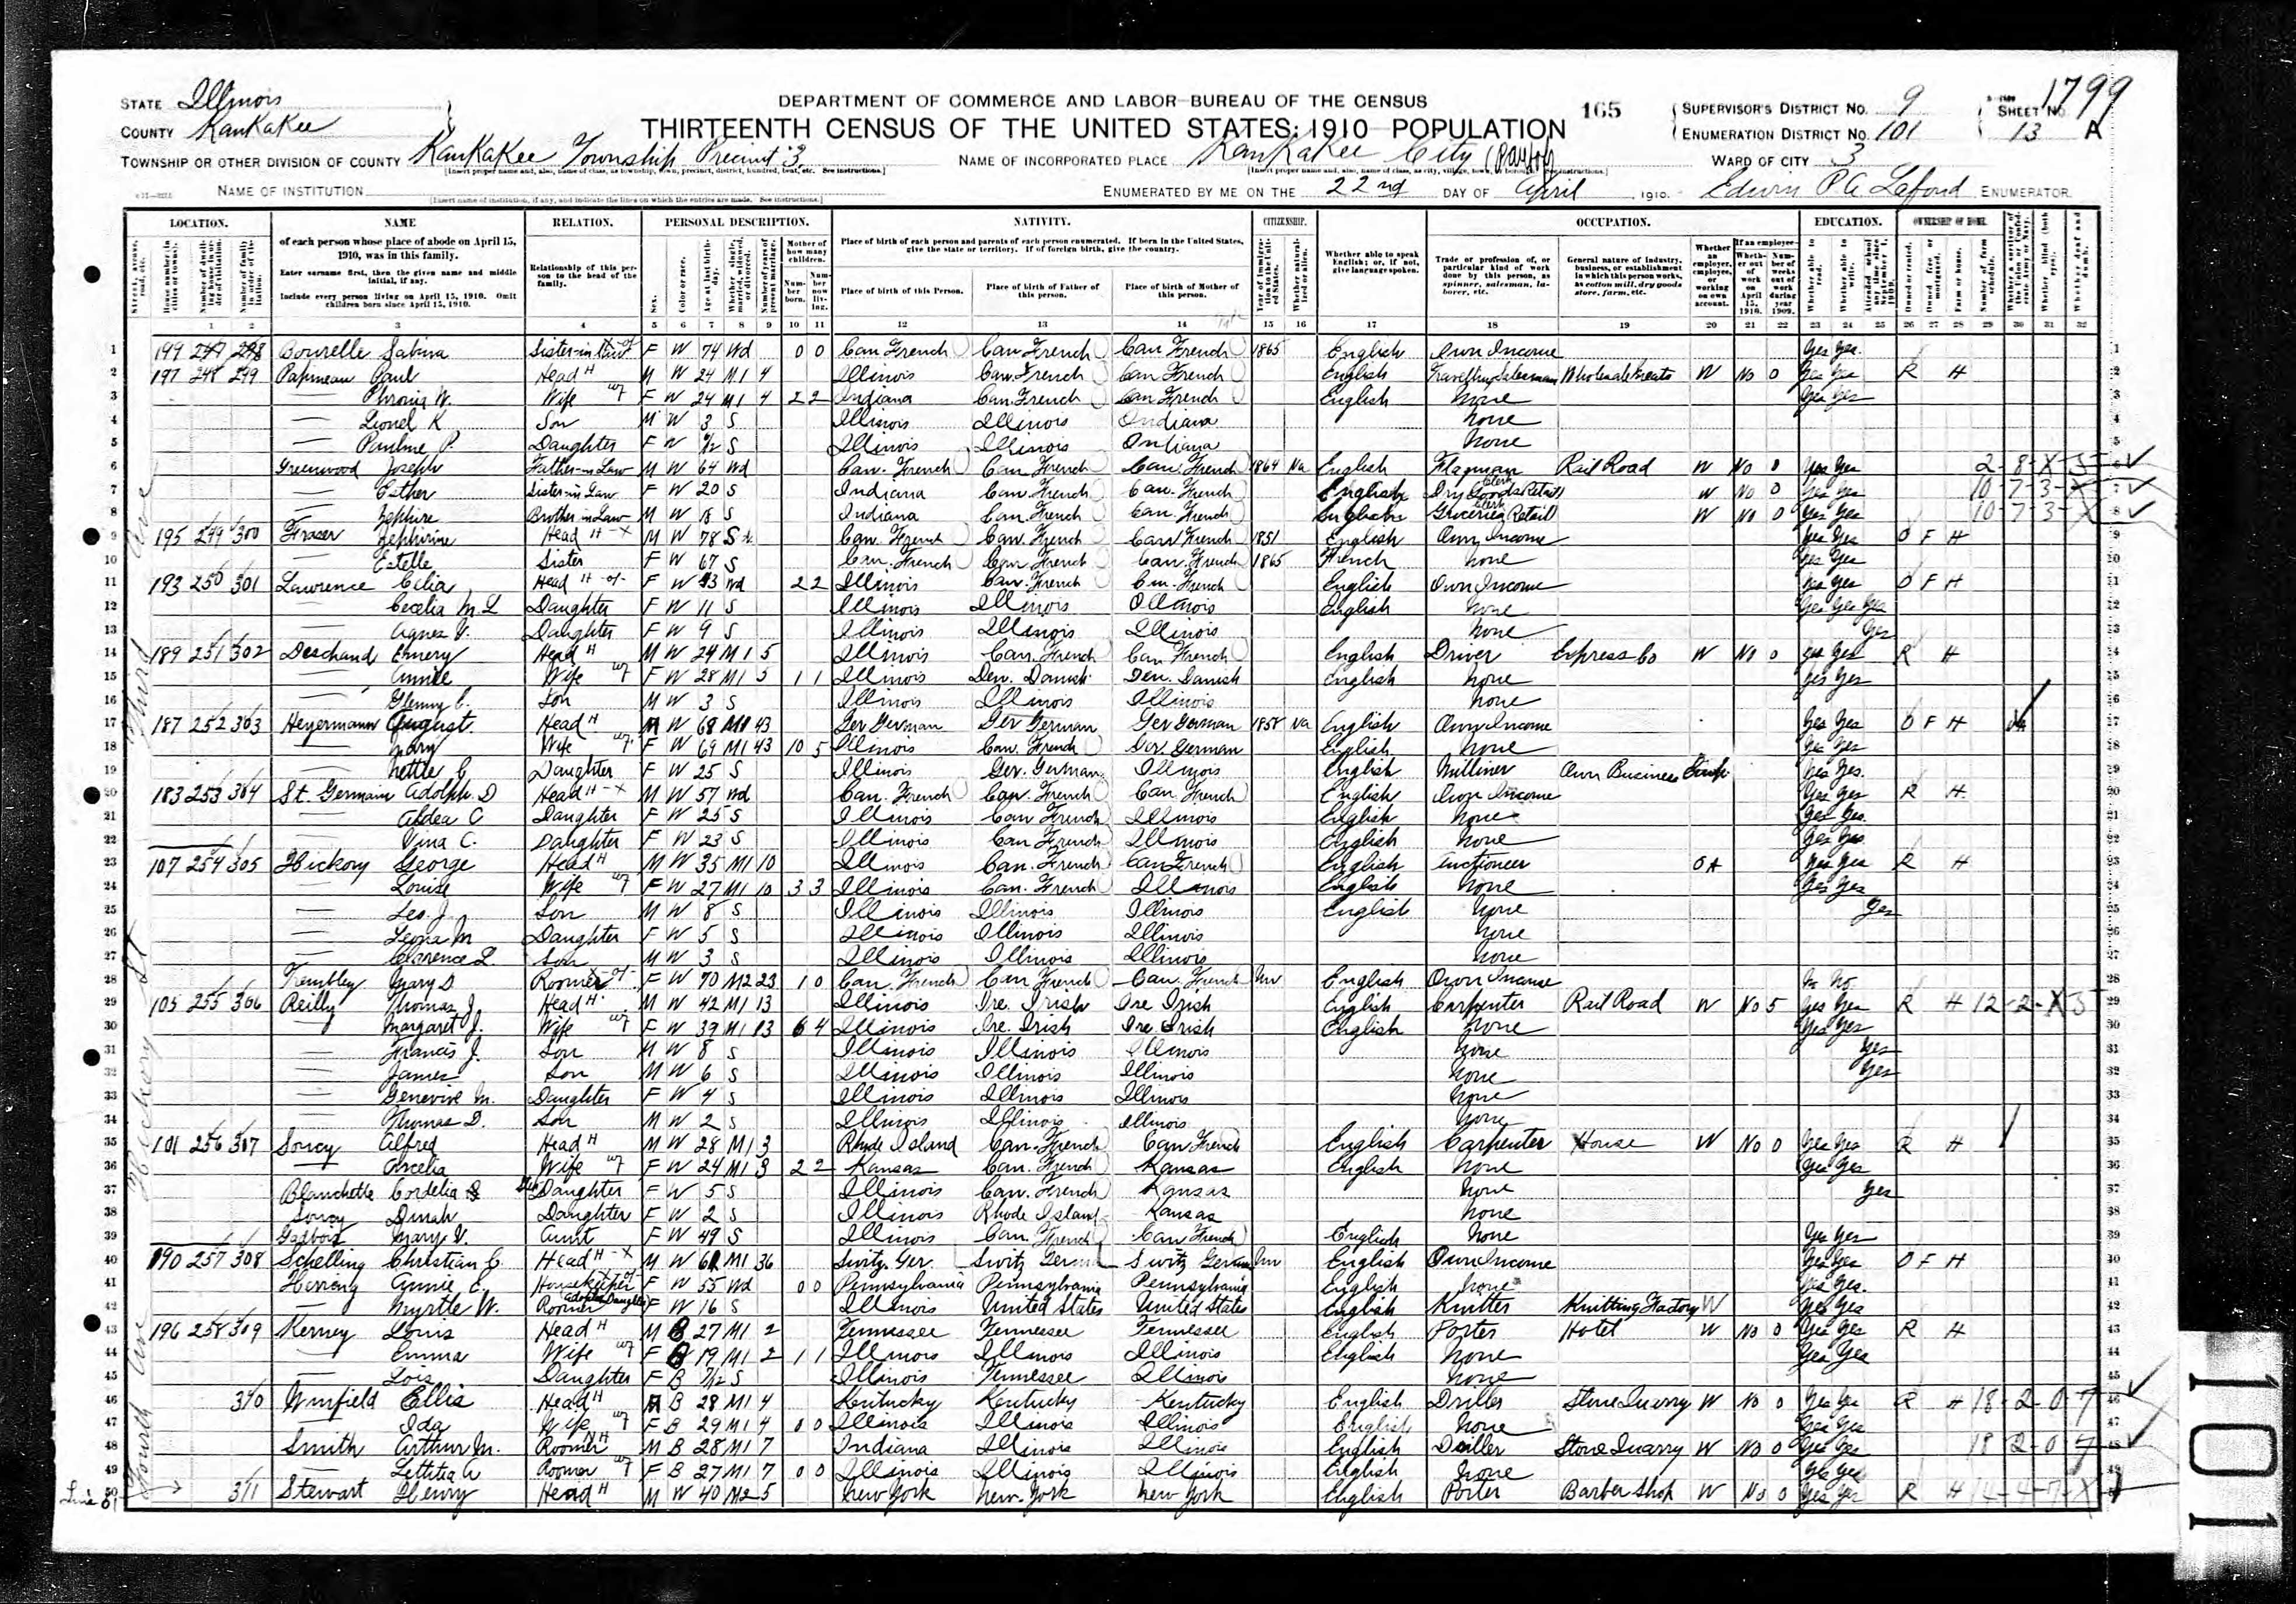 STATE Illinois
COUNTY KanKaKee
DEPARTMENT OF COMMERCE AND LABOR-BUREAU OF THE CENSUS
THIRTEENTH CENSUS OF THE UNITED STATES: 1910 POPULATION
165
SUPERVISOR'S DISTRICT NO. 9
ENUMERATION DISTRICT NO. 101
SHEET NO. 13 A
1799
TOWNSHIP OR OTHER DIVISION OF COUNTY KanKaKee Township Precinct 3
NAME OF INCORPORATED PLACE KanKaKee City (Part of)
WARD OF CITY 3
NAME OF INSTITUTION
ENUMERATED BY ME ON THE 22nd DAY OF April, 1910. Edwin P.A. Lafond ENUMERATOR.
LOCATION. NAME RELATION. PERSONAL DESCRIPTION. NATIVITY. CITIZENSHIP. OCCUPATION. EDUCATION. OWNERSHIP OF HOME.
of each person whose place of abode on April 15, 1910, was in this family.
Enter surname first, then the given name and middle initial, if any.
Include every person living on April 15, 1910. Omit children born since April 15, 1910.
Relationship of this person to the head of the family.
Place of birth of each person and parents of each person enumerated. If born in the United States, give the state or territory. If of foreign birth, give the country.
Place of birth of this Person. Place of birth of Father of this person. Place of birth of Mother of this person.
Whether able to speak English; or, if not, give language spoken.
Trade or profession of, or particular kind of work done by this person, as spinner, salesman, laborer, etc.
General nature of industry, business, or establishment in which this person works, as cotton mill, dry goods store, farm, etc.
1 2 3 4 5 6 7 8 9 10 11 12 13 14 15 16 17 18 19 20 21 22 23 24 25 26 27 28 29 30 31 32
1 199 Bourelle Sabina Sister-in Law F W 74 Wd 0 0 Can French Can French Can French 1865 English Own Income Yes Yes
2 197 248 299 Papineau Paul Head M W 24 M1 4 Illinois Can. French Can French English Travelling Salesman Wholesale Meats W No 0 Yes Yes R H
3 Wife F W 24 M1 4 2 2 Indiana Can. French Can French English None Yes Yes
4 Lionel K Son M W 3 S Illinois Illinois Indiana None
5 Pauline P. Daughter F W S Illinois Illinois Indiana None
6 Greenwood Joseph Father-in Law M W 64 Wd Can. French Can French Can French 1864 Na English Flagman Rail Road W No 0 Yes Yes 2-8-X-5
7 Esther Sister-in Law F W 20 S Indiana Can. French Can. French English Clerk Dry Goods Retail W No 0 Yes Yes 10-7-3-X
8 Zephire Brother in Law M W 18 S Indiana Can. French Can. French English Clerk Groceries Retail W No 0 Yes Yes 10-7-3-X
9 195 249 300 Fraser Zephirine Head M W 78 S Can. French Can. French Can French 1851 English Own Income Yes Yes O F H
10 Estelle Sister F W 67 S Can. French Can French Can. French 1865 French None Yes Yes
11 193 250 301 Lawrence Celia Head F W Wd 2 2 Illinois Can. French Can. French English Own Income Yes Yes O F H
12 Cecelia M. L Daughter F W 11 S Illinois Illinois Illinois English None Yes Yes Yes
13 Agnes V. Daughter F W 9 S Illinois Illinois Illinois None Yes
14 189 251 302 Deschand Emery Head M W 24 M1 5 Illinois Can. French Can French English Driver Express Co W No 0 Yes Yes R H
15 Annie Wife F W 28 M1 5 1 1 Illinois Den. Danish Den. Danish English None Yes Yes
16 Glenny C. Son M W 3 S Illinois Illinois Illinois None
17 187 252 303 Heyermann August Head M W 68 M1 43 Ger German Ger German Ger German 1858 Na English Own Income Yes Yes O F H
18 Mary Wife F W 69 M1 43 10 5 Illinois Can. French Ger. German English None Yes Yes
19 Nettie C Daughter F W 25 S Illinois Ger. German Illinois English Milliner Own Business Emp. Yes Yes
20 183 253 304 St. Germain Adolph. D Head M W 57 Wd Can. French Can. French Can. French English Own Income Yes Yes R H
21 Aldea C Daughter F W 25 S Illinois Can French Illinois English None Yes Yes
22 Vina C. Daughter F W 23 S Illinois Can French Illinois English None Yes Yes
23 107 254 305 Hickory George Head M W 35 M1 10 Illinois Can. French Can French English Auctioneer OA Yes Yes R H
24 Louise Wife F W 27 M1 10 3 3 Illinois Can. French Illinois English None Yes Yes
25 Leo. J. Son M W 8 S Illinois Illinois Illinois English None Yes
26 Leona M Daughter F W 5 S Illinois Illinois Illinois None
27 Clarence L. Son M W 3 S Illinois Illinois Illinois None
28 Trembley Mary D Roomer F W 70 M2 23 1 0 Can. French Can French Can. French Un English Own Income No No
29 105 255 306 Reilly Thomas J. Head M W 42 M1 13 Illinois Ire. Irish Ire Irish English Carpenter Rail Road W No 5 Yes Yes R H 12-2-X-5
30 Margaret J. Wife F W 39 M1 13 6 4 Illinois Ire. Irish Ire Irish English None Yes Yes
31 Francis J. Son M W 8 S Illinois Illinois Illinois None Yes
32 James Son M W 6 S Illinois Illinois Illinois None Yes
33 Genevive M. Daughter F W 4 S Illinois Illinois Illinois None
34 Thomas D. Son M W 2 S Illinois Illinois Illinois None
35 101 256 307 Soucy Alfred Head M W 28 M1 3 Rhode Island Can. French Can French English Carpenter House W No 0 Yes Yes R H
36 Wife F W 24 M1 3 2 2 Kansas Can. French Kansas English None Yes Yes
37 Blanchette Cordelia Step Daughter F W 5 S Illinois Can. French Kansas None Yes
38 Soucy Dinah Daughter F W 2 S Illinois Rhode Island Kansas None
39 Mary V. Aunt F W 49 S Illinois Can. French Can French English None Yes Yes
40 190 257 308 Schelling Christian C. Head M W 61 M1 36 Switz. Ger. Switz German Switz German Un English Own Income Yes Yes O F H
41 Annie E. Housekeeper F W 55 Wd 0 0 Pennsylvania Pennsylvania Pennsylvania English None Yes Yes
42 Myrtle W. Roomer Adopted Daughter F W 16 S Illinois United States United States English Knitter Knitting Factory W Yes Yes
43 196 258 309 Kerney Louis Head M B 27 M1 2 Tennessee Tennessee Tennessee English Porter Hotel W No 0 Yes Yes R H
44 Emma Wife F B 19 M1 2 1 1 Illinois Illinois Illinois English None Yes Yes
45 Lois Daughter F B 7/12 S Illinois Tennessee Illinois None
46 310 Winfield Ellis Head M B 28 M1 4 Kentucky Kentucky Kentucky English Driller Stone Quarry W No 0 Yes Yes R H 18-2-0-7
47 Ida Wife F B 29 M1 4 0 0 Illinois Illinois Illinois English None Yes Yes
48 Smith Arthur M. Roomer M B 28 M1 7 Indiana Illinois Illinois English Driller Stone Quarry W No 0 Yes Yes 18-2-0-7
49 Lettitia A Roomer F B 27 M1 7 0 0 Illinois Illinois Illinois English None Yes Yes
50 311 Stewart Henry Head M W 40 M2 5 New York New York New York English Porter Barber Shop W No 0 Yes Yes R H 14-4-7-X
Third Ave
Hickory St
Fourth Ave
101